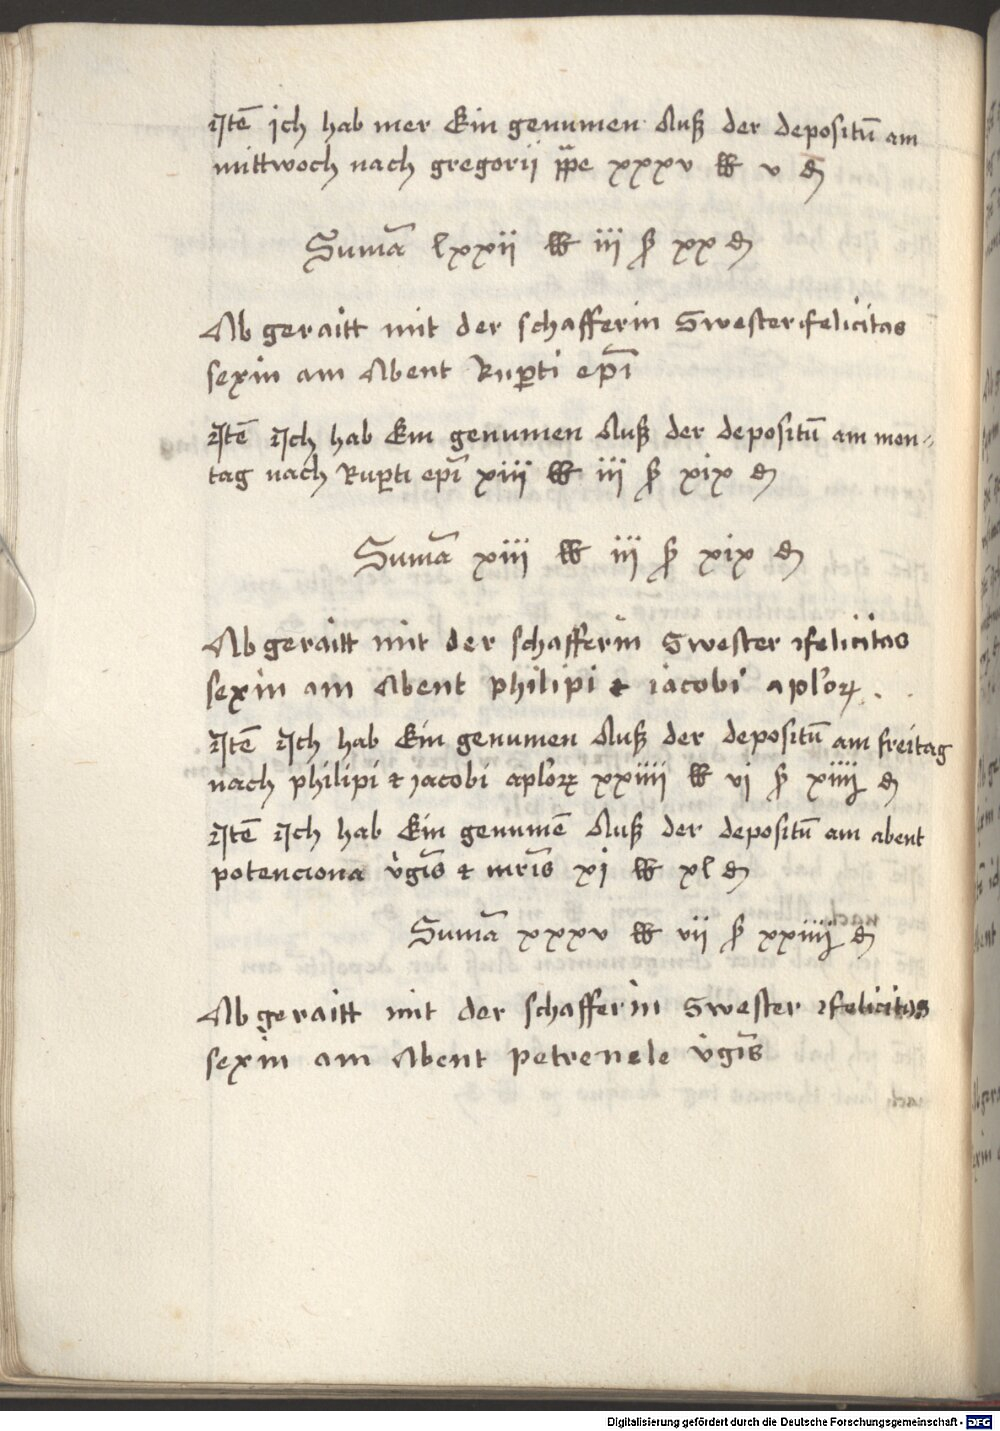 Jtē jch hab mer Ein genumen Auß der depositū am
mittwoch nach gregorij ppe xxxv ℔ v ₰
Sumā lxxij ℔ iij ß xx ₰
Ab geraitt mit der schafferin Swester felicitas
sexin am Abent Ruperti epī
Jtē Jch hab Ein genumen Auß der depositū am mon-
tag nach Ruperti epī xiii ℔ iij ß xix ₰
Sumā xiii ℔ iij ß xix ₰
Ab geraitt mit der schafferin Swester felicitas
sexin am Abent philipi et iacobi aplorꝝ
Jtē Jch hab Ein genumen Auß der depositū am freitag
nach philipi et jacobi aplorꝝ xxiiii ℔ vj ß xiiij ₰
Jtē Jch hab Ein genumē Auß der depositū am abent
potenciona vgīs et mrīs xj ℔ xl ₰
Sumā xxxv ℔ vij ß xxiiij ₰
Ab geraitt mit der schafferin Swester felicitas
sexin am Abent petronele vgīs
Digitalisierung gefördert durch die Deutsche Forschungsgemeinschaft - DFG